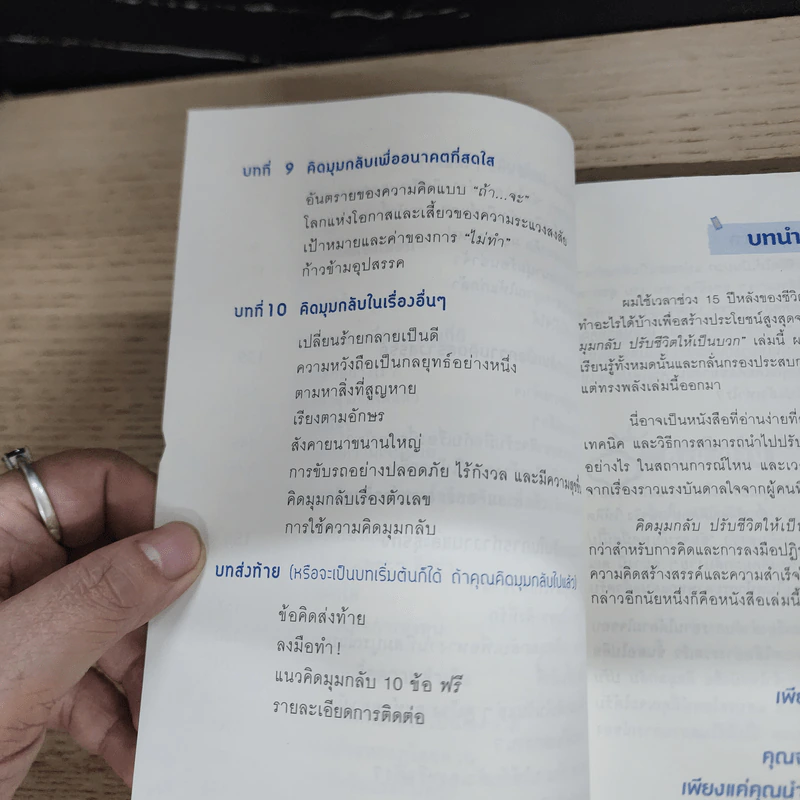 บทที่ 9 คิดมุมกลับเพื่ออนาคตที่สดใส
อันตรายของความคิดแบบ "ถ้า...จะ"
โลกแห่งโอกาสและเสี้ยวของความระแวงสงสัย
เป้าหมายและค่าของการ "ไม่ทำ"
ก้าวข้ามอุปสรรค
บทที่ 10 คิดมุมกลับในเรื่องอื่นๆ
เปลี่ยนร้ายกลายเป็นดี
ความหวังถือเป็นกลยุทธ์อย่างหนึ่ง
ตามหาสิ่งที่สูญหาย
เรียงตามอักษร
สังคายนาขนานใหญ่
การขับรถอย่างปลอดภัย ไร้กังวล และมีความสุขขึ้น
คิดมุมกลับเรื่องตัวเลข
การใช้ความคิดมุมกลับ
บทส่งท้าย (หรือจะเป็นบทเริ่มต้นก็ได้ ถ้าคุณคิดมุมกลับไปแล้ว)
ข้อคิดส่งท้าย
ลงมือทำ!
แนวคิดมุมกลับ 10 ข้อ ฟรี
รายละเอียดการติดต่อ
บทนำ
ผมใช้เวลาช่วง 15 ปีหลังของชีวิ
ทำอะไรได้บ้างเพื่อสร้างประโยชน์สูงสุดจ
มุมกลับ ปรับชีวิตให้เป็นบวก" เล่มนี้ ผ
เรียนรู้ทั้งหมดนั้นและกลั่นกรองประสบก
แต่ทรงพลังเล่มนี้ออกมา
นี่อาจเป็นหนังสือที่อ่านง่ายที่
เทคนิค และวิธีการสามารถนำไปปรับ
อย่างไร ในสถานการณ์ไหน และเว
จากเรื่องราวแรงบันดาลใจจากผู้คนที่
คิดมุมกลับ ปรับชีวิตให้เป็น
กว่าสำหรับการคิดและการลงมือปฏิ
ความคิดสร้างสรรค์และความสำเร็จใ
กล่าวอีกนัยหนึ่งก็คือหนังสือเล่มนี้
เพีย
คุณจ
เพียงแค่คุณนำ